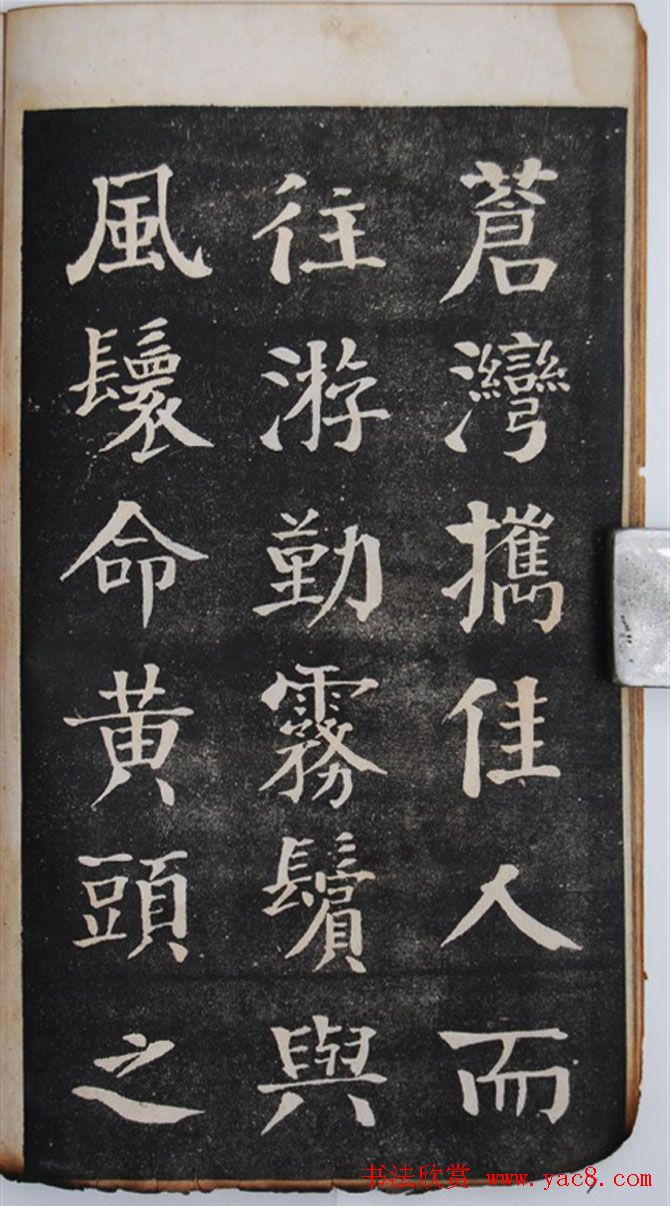 蒼灣攜佳人而
往游勤霧鬢與
風鬟命黃頭之
书法欣赏 www.yac8.com